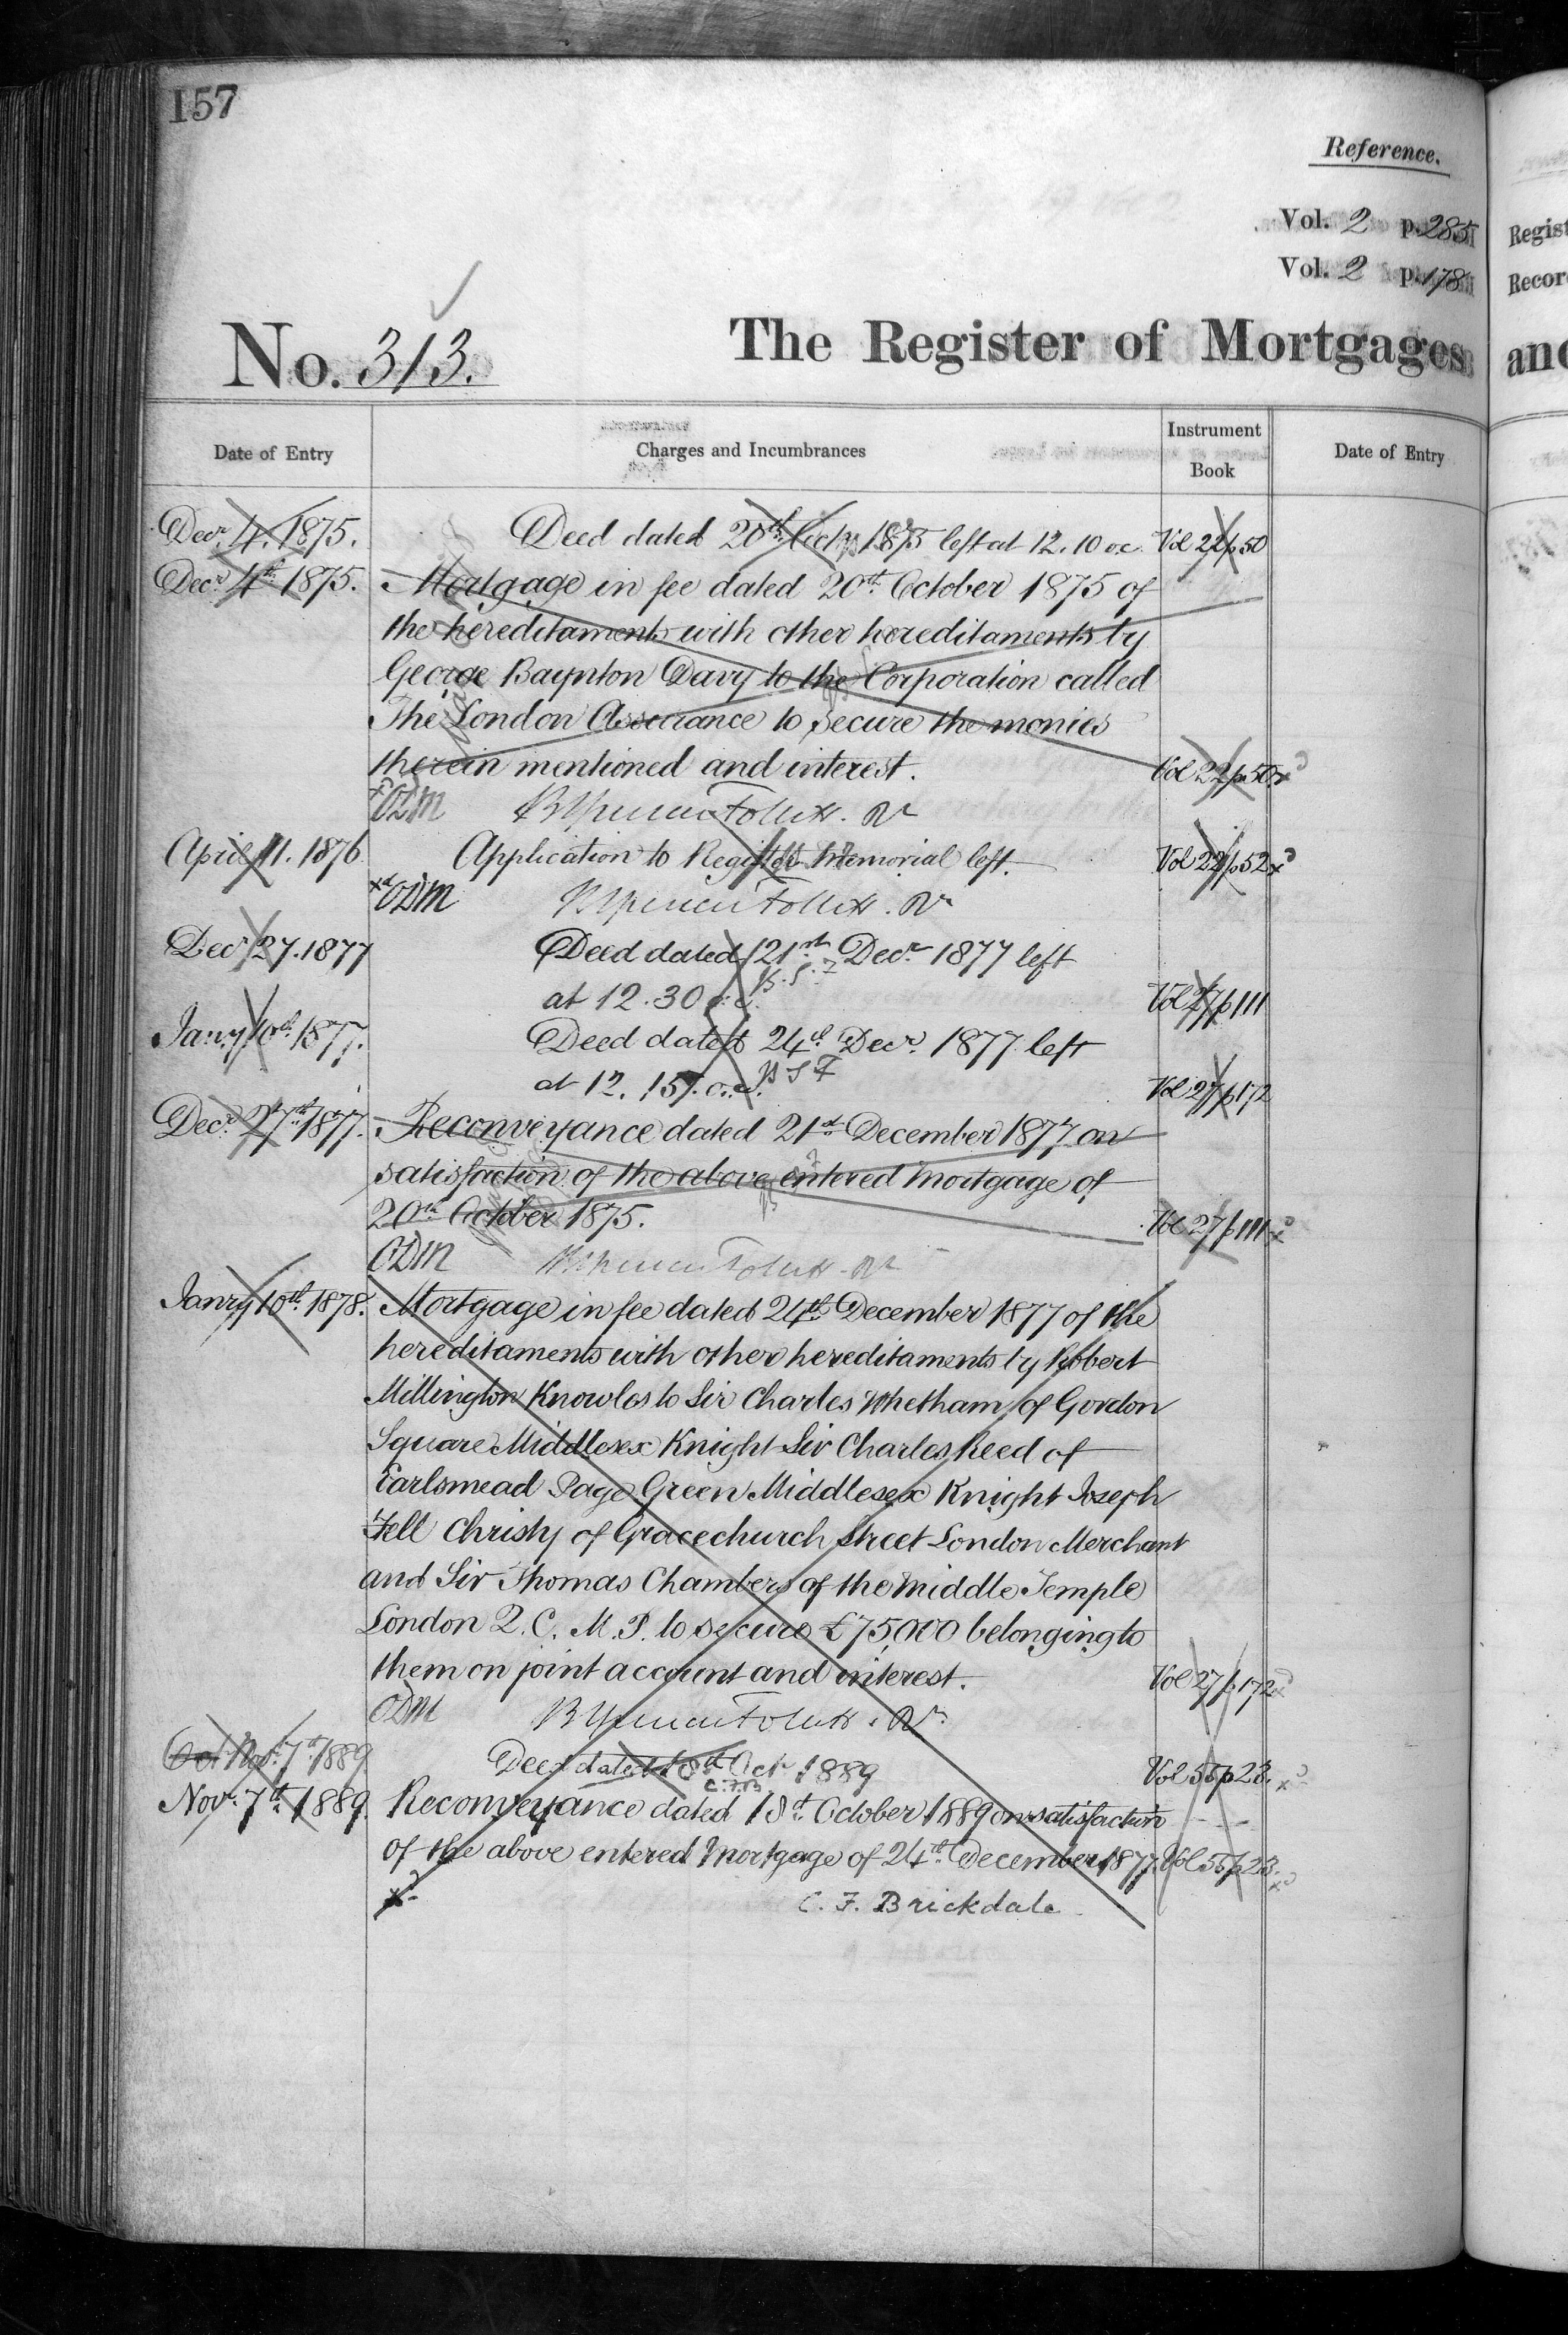 157
Reference.
Vol. 2 p. 285
Vol. 2 p. 178
No. 313.
The Register of Mortgages
Date of Entry
Charges and Incumbrances
Instrument Book
Date of Entry
Decr. 4. 1875. Deed dated 20th Octr 1875 left at 12.10 o.c. Vol 22 p 50
Decr. 4th 1875. Mortgage in fee dated 20th October 1875 of
the hereditaments with other hereditaments by
George Baynton Davy to the Corporation called
The London Assurance to secure the monies
therein mentioned and interest. Vol 22 p 50
ODM
April 11. 1876 Application to Register Memorial left. Vol 22 p 52
ODM
Decr 27. 1877 Deed dated 21st Decr 1877 left
at 12.30 o.c. B.S.F Vol 27 p 111
Janry 10th 1877. Deed dated 24th Decr. 1877 left
at 12.15 o.c. B S F Vol 27 p 172
Decr. 27th 1877. Reconveyance dated 21st December 1877 on
satisfaction of the above entered Mortgage of
20th October 1875. Vol 27 p 111
ODM
Janry 10th 1878. Mortgage in fee dated 24th December 1877 of the
hereditaments with other hereditaments by Robert
Millington Knowles to Sir Charles Whetham of Gordon
Square Middlesex Knight Sir Charles Reed of
Earlsmead Page Green Middlesex Knight Joseph
Fell Christy of Gracechurch Street London Merchant
and Sir Thomas Chambers of the Middle Temple
London Q.C. M.P. to secure £75,000 belonging to
them on joint account and interest. Vol 27 p 172
ODM
Oct Nov. 7th 1889 Deed dated 18th Octr 1889 Vol 55 p 23.
C.F.B.
Nov. 7th 1889. Reconveyance dated 18th October 1889 on satisfaction
of the above entered Mortgage of 24th December 1877. Vol 55 p 23.
C. F. Brickdale
Regist
Recor
and